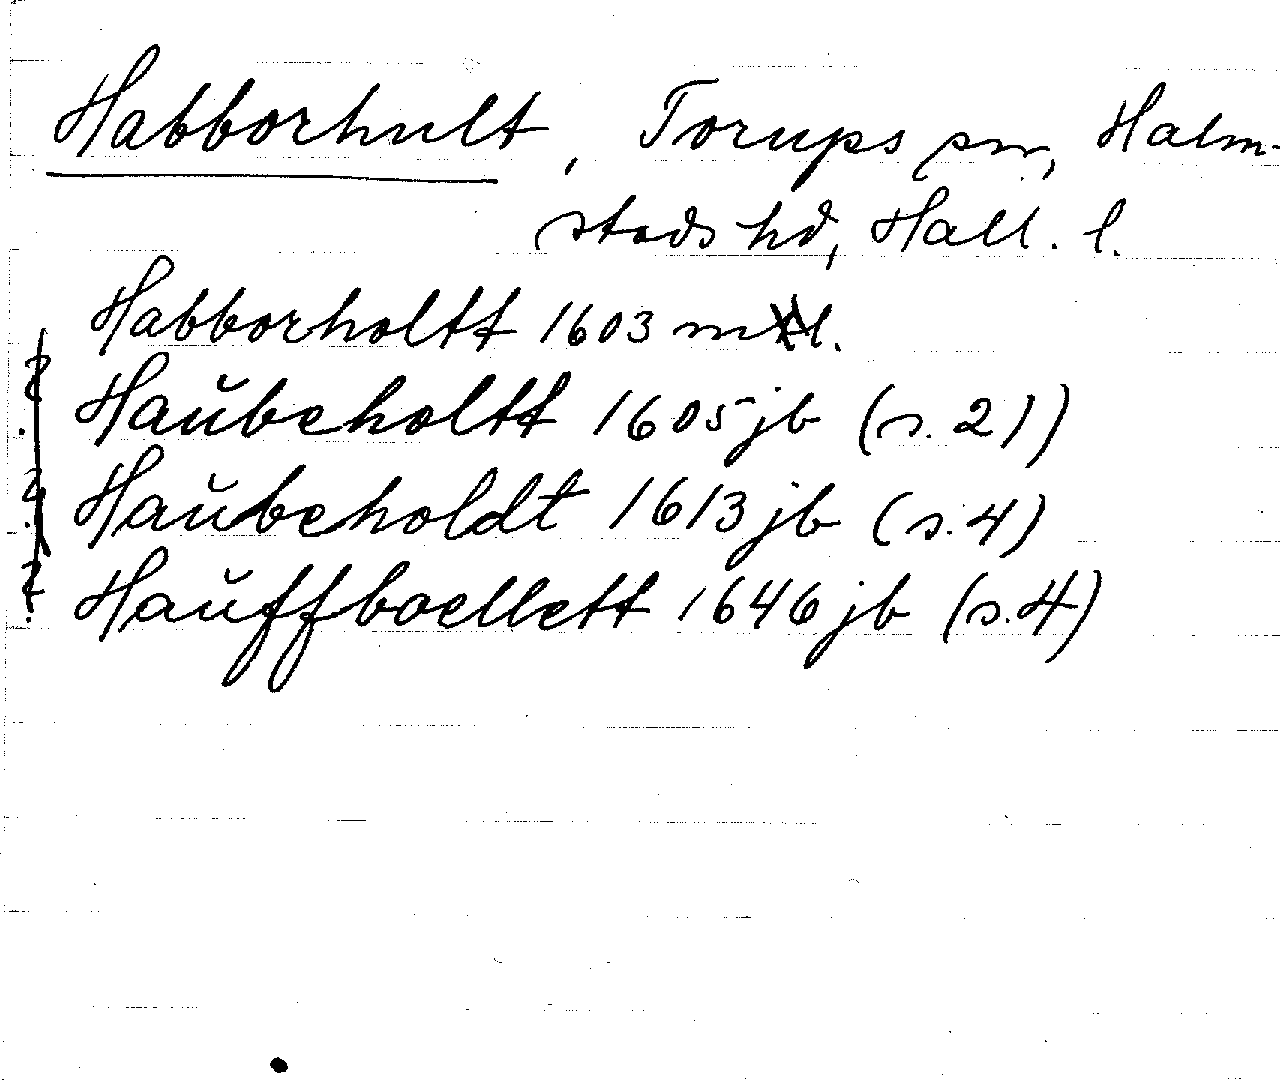 Habborhult, Torups sn, Halm-
stads hd, Hall. l.
Habborholtt 1603 ml.
? Haŭbeholtt 1605 jb (s. 21)
? Haŭbeholdt 1613 jb (s. 4)
? Haŭffboellett 1646 jb (s. 4)